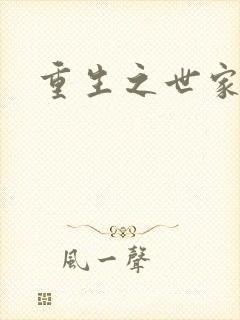 重生之世家
風一聲